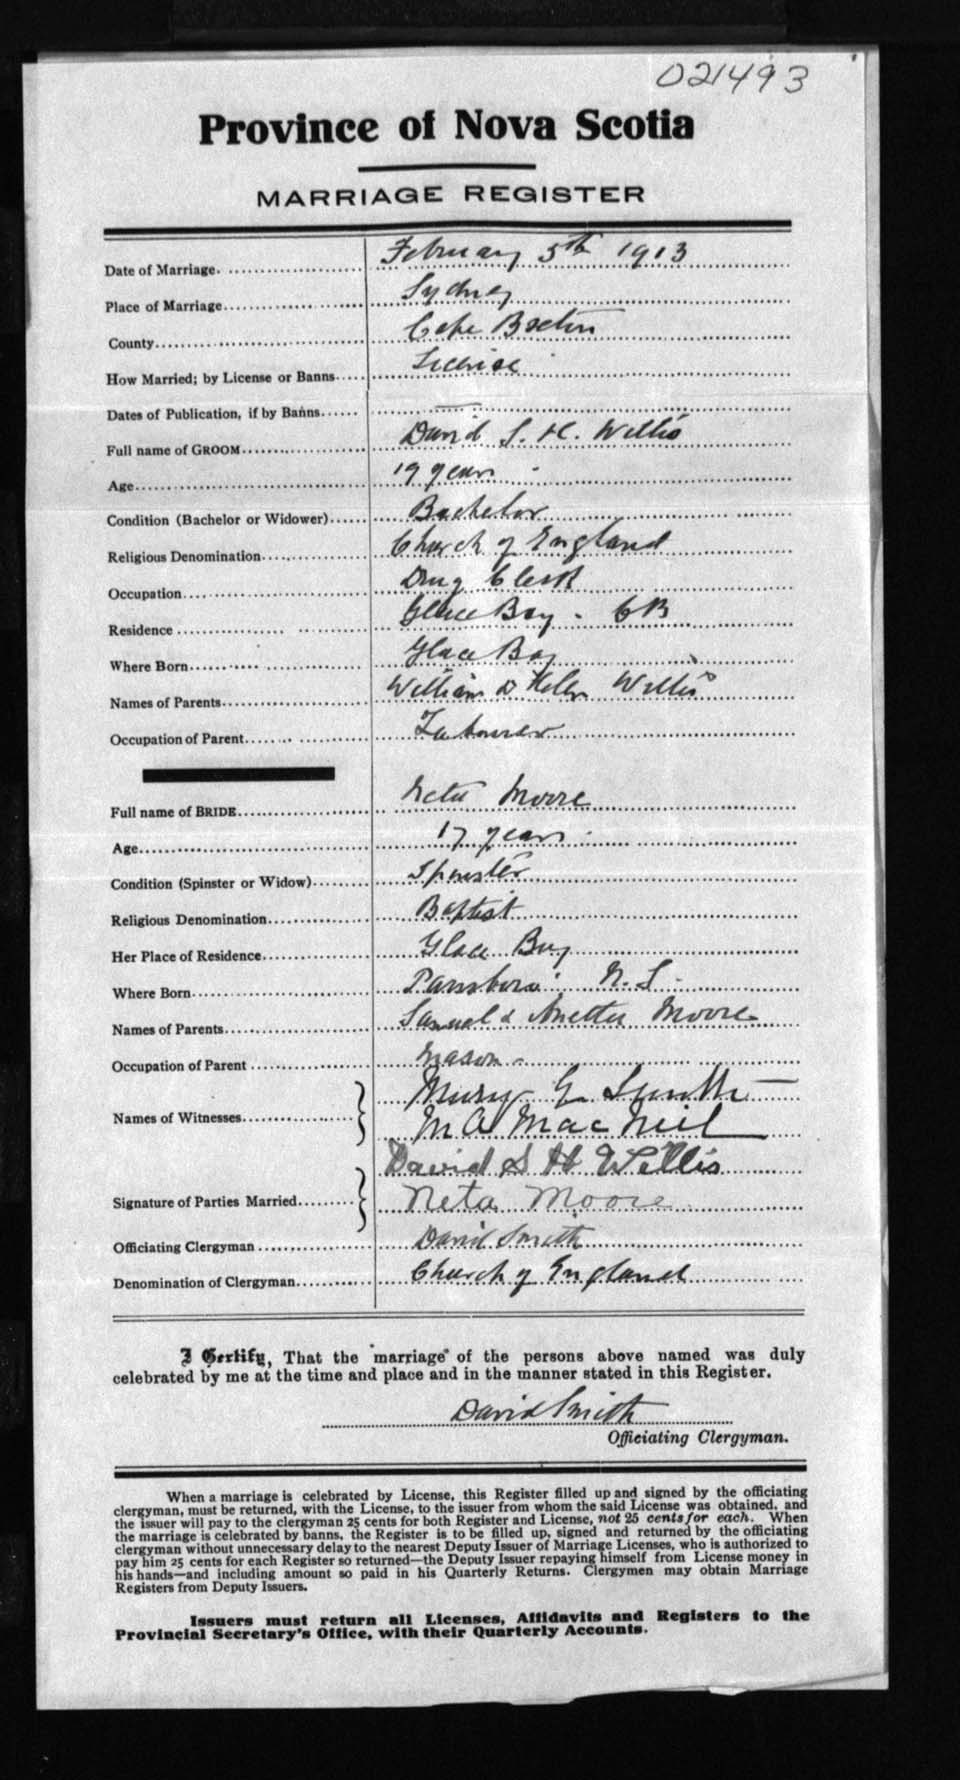 021493
Province of Nova Scotia
MARRIAGE REGISTER
Date of Marriage. February 5th 1913
Place of Marriage Sydney
County Cape Breton
How Married; by License or Banns License
Dates of Publication, if by Banns —
Full name of GROOM David S. H. Willis
Age 19 years
Condition (Bachelor or Widower) Bachelor
Religious Denomination Church of England
Occupation Drug Clerk
Residence Glace Bay - CB
Where Born Glace Bay
Names of Parents William & Helen Willis
Occupation of Parent Labourer
Full name of BRIDE Neta Moore
Age 17 years
Condition (Spinster or Widow) Spinster
Religious Denomination Baptist
Her Place of Residence Glace Bay
Where Born Parrsboro N.S.
Names of Parents Samuel & Anetta Moore
Occupation of Parent Mason
Names of Witnesses Mary E. Smith
M A MacNeil
Signature of Parties Married David S H Willis
Neta Moore
Officiating Clergyman David Smith
Denomination of Clergyman Church of England
I Certify, That the marriage of the persons above named was duly
celebrated by me at the time and place and in the manner stated in this Register.
David Smith
Officiating Clergyman.
When a marriage is celebrated by License, this Register filled up and signed by the officiating
clergyman, must be returned, with the License, to the issuer from whom the said License was obtained, and
the issuer will pay to the clergyman 25 cents for both Register and License, not 25 cents for each. When
the marriage is celebrated by banns, the Register is to be filled up, signed and returned by the officiating
clergyman without unnecessary delay to the nearest Deputy Issuer of Marriage Licenses, who is authorized to
pay him 25 cents for each Register so returned—the Deputy Issuer repaying himself from License money in
his hands—and including amount so paid in his Quarterly Returns. Clergymen may obtain Marriage
Registers from Deputy Issuers.
Issuers must return all Licenses, Affidavits and Registers to the
Provincial Secretary's Office, with their Quarterly Accounts.